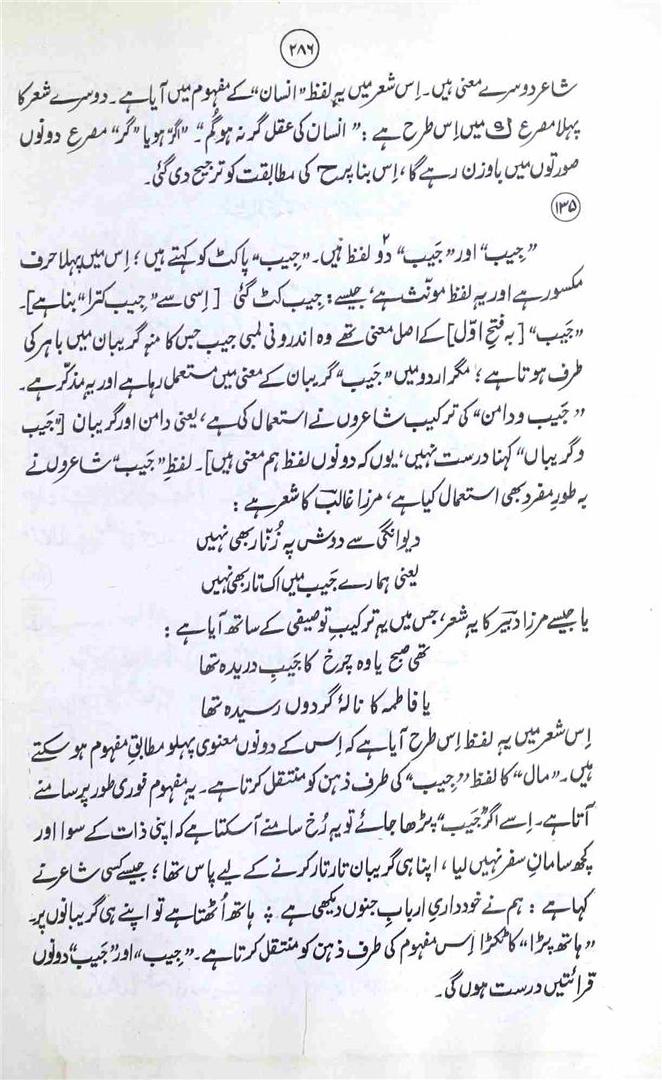 ۲۸۶
شاعر دوسرے معنی ہیں۔ اِس شعر میں یہ لفظ "انسان" کے مفہوم میں آیا ہے۔ دوسرے شعر کا
پہلا مصرع میں اِس طرح ہے: "انسان کی عقل گر نہ ہو گُم"۔ "اگر" ہو یا "گر" مصرع دونوں
صورتوں میں باوزن رہے گا، اِس بنا پر ح کی مطابقت کو ترجیح دی گئی۔
۱۳۵
"جِیب" اور "جَیب" دو ۲ لفظ ہیں۔ "جِیب" پاکٹ کو کہتے ہیں؛ اِس میں پہلا حرف
مکسور ہے اور یہ لفظ مونّث ہے، جیسے: جِیب کٹ گئی [اِسی سے "جِیب کترا" بنا ہے]۔
"جَیب" [بہ فتحِ اوّل] کے اصل معنی تھے وہ اندرونی لمبی جیب جس کا منہ گریبان میں باہر کی
طرف ہوتا ہے؛ مگر اردو میں "جَیب" گریبان کے معنی میں مستعمل رہا ہے اور یہ مذکّر ہے۔
"جَیب و دامن" کی ترکیب شاعروں نے استعمال کی ہے، یعنی دامن اور گریبان ["جَیب
و گریباں" کہنا درست نہیں، یوں کہ دونوں لفظ ہم معنی ہیں]۔ لفظِ "جَیب" شاعروں نے
بہ طورِ مفرد بھی استعمال کیا ہے، مرزا غالبؔ کا شعر ہے:
دیوانگی سے دوش پہ زُنّار بھی نہیں
یعنی ہمارے جَیب میں اک تار بھی نہیں
یا جیسے مرزا دبیرؔ کا یہ شعر، جس میں یہ ترکیبِ توصیفی کے ساتھ آیا ہے:
تھی صبح یا وہ چرخ کا جَیبِ دریدہ تھا
یا فاطمہ کا نالۂ گردوں رسیدہ تھا
اِس شعر میں یہ لفظ اِس طرح آیا ہے کہ اِس کے دونوں معنوی پہلو مطابقِ مفہوم ہو سکتے
ہیں۔ "مال" کا لفظ "جِیب" کی طرف ذہن کو منتقل کرتا ہے۔ یہ مفہوم فوری طور پر سامنے
آتا ہے۔ اِسے اگر "جَیب" پڑھا جائے تو یہ رُخ سامنے آسکتا ہے کہ اپنی ذات کے سوا اور
کچھ سامانِ سفر نہیں لیا، اپنا ہی گریبان تار تار کرنے کے لیے پاس تھا؛ جیسے کسی شاعر نے
کہا ہے: ہم نے خودداریِ اربابِ جنوں دیکھی ہے ؎ ہاتھ اُٹھتا ہے تو اپنے ہی گریبانوں پر۔
"ہاتھ پڑا" کا ٹکڑا اِس مفہوم کی طرف ذہن کو منتقل کرتا ہے۔ "جِیب" اور "جَیب" دونوں
قرائتیں درست ہوں گی۔